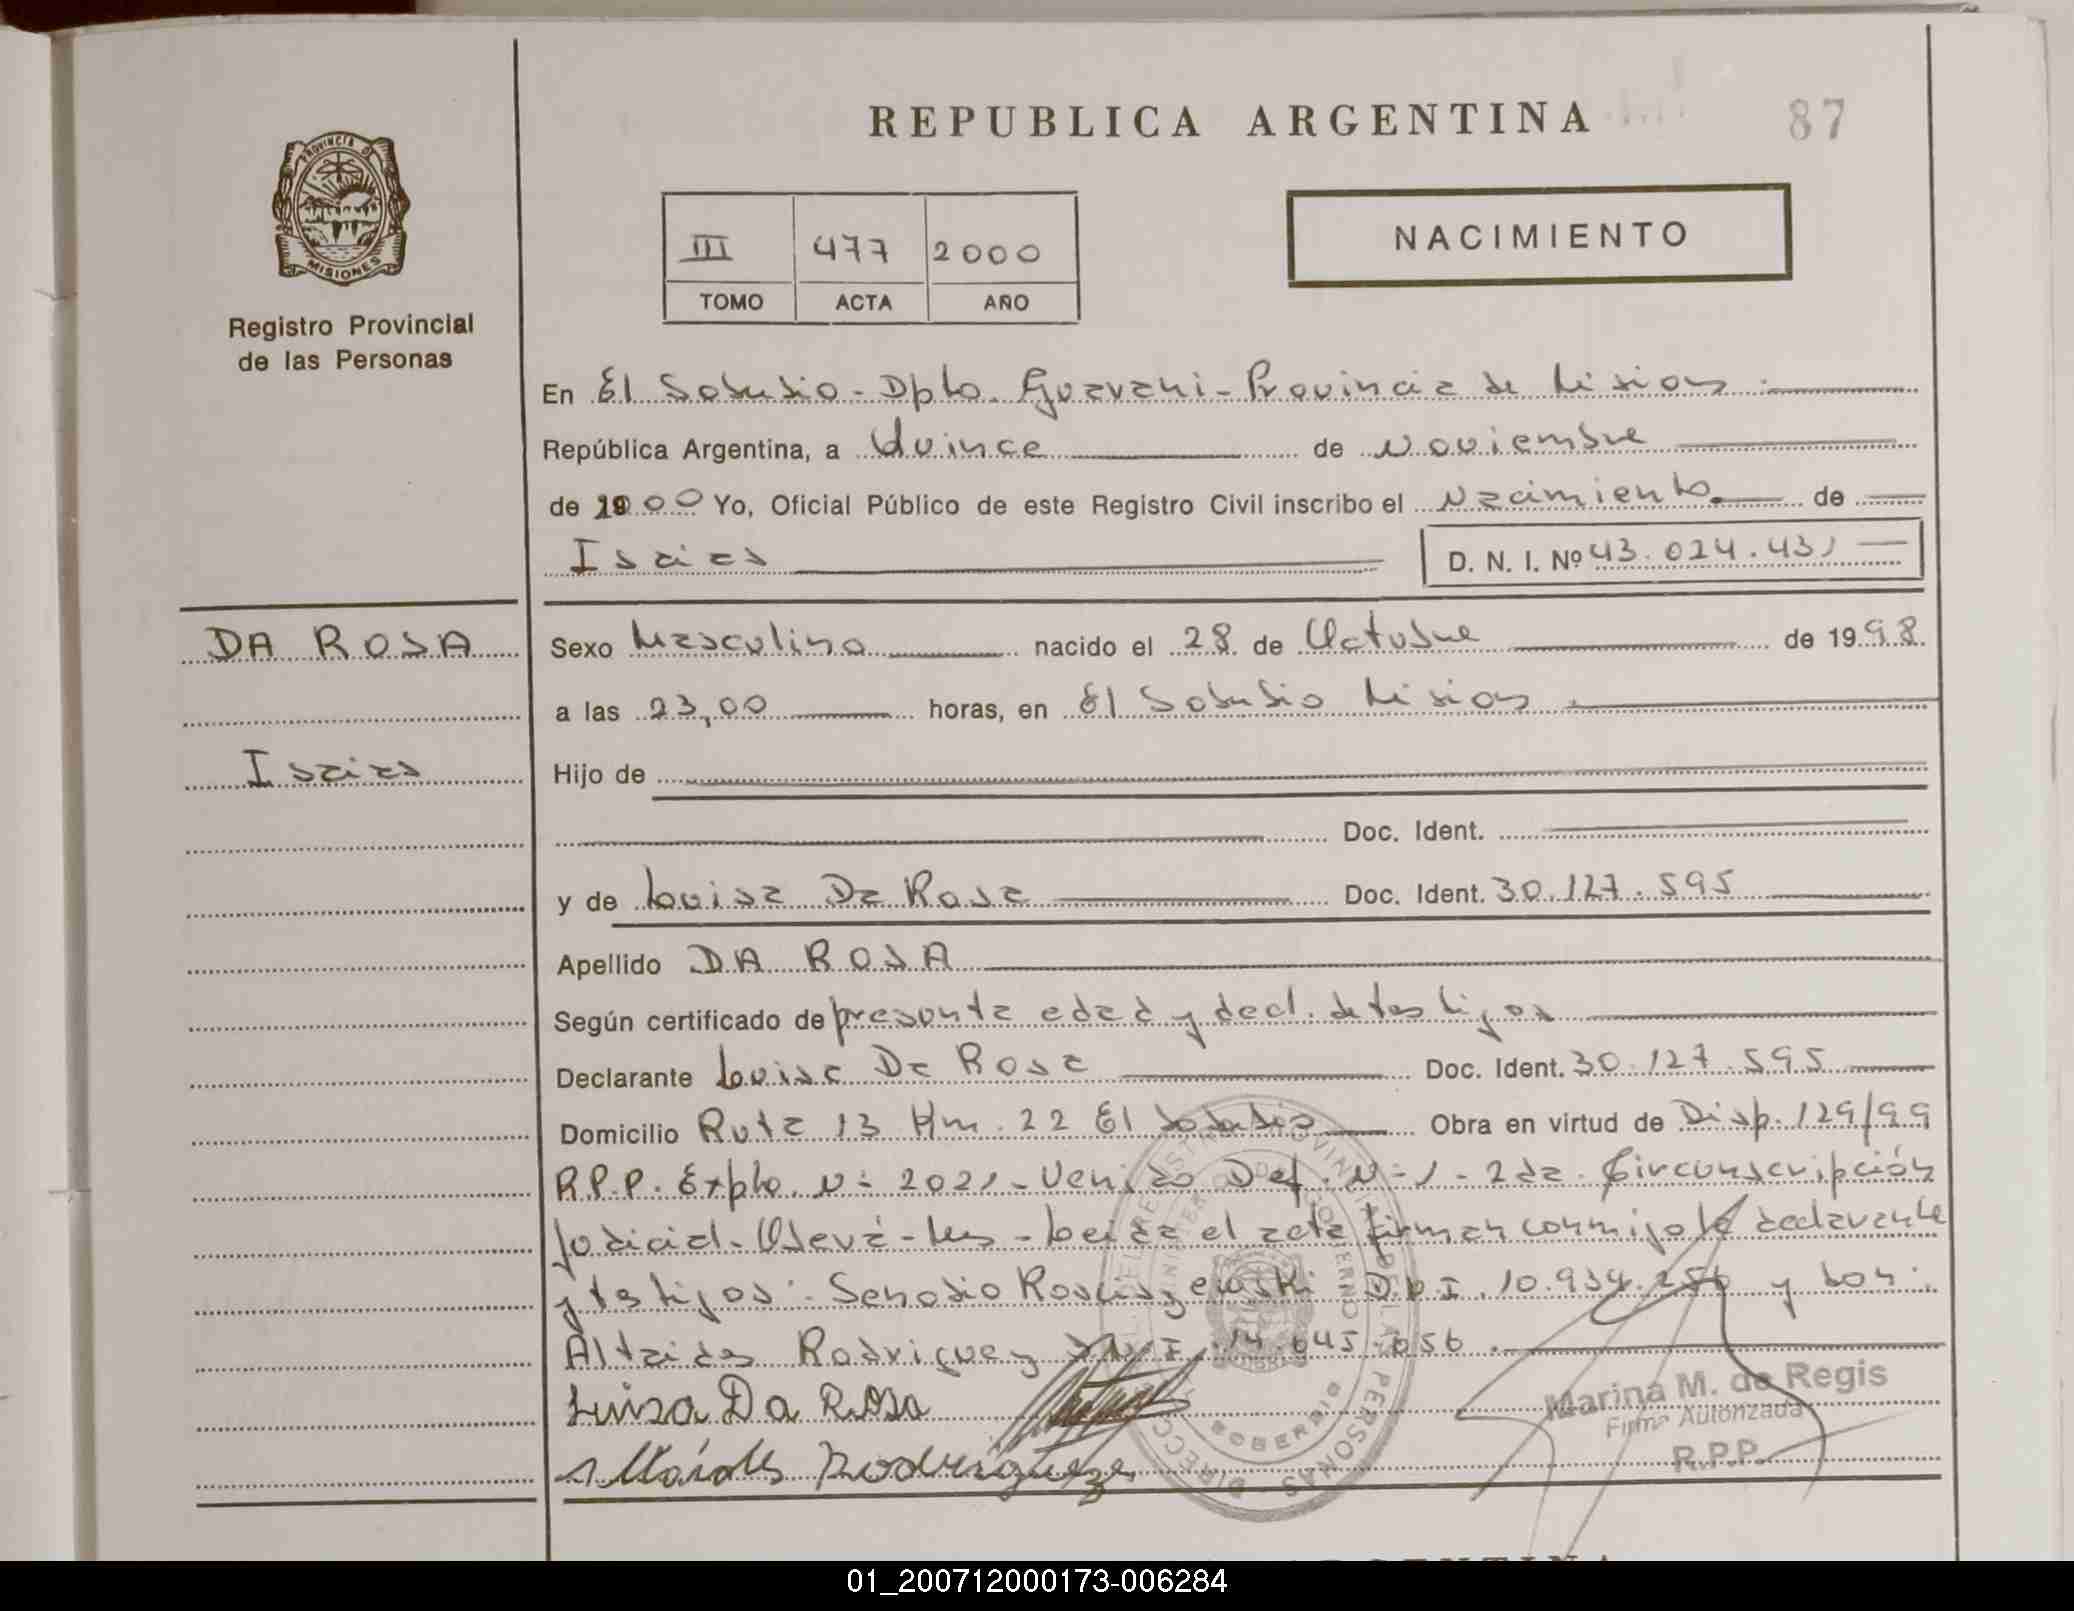 REPUBLICA ARGENTINA
87
PROVINCIA DE
MISIONES
Registro Provincial
de las Personas
III 477 2000
TOMO ACTA AÑO
NACIMIENTO
En El Soberbio - Dpto. Guarani - Provincia de Misiones
República Argentina, a Quince de Noviembre
de 2000 Yo, Oficial Público de este Registro Civil inscribo el Nacimiento de
Isaias D. N. I. Nº 43.024.431
DA ROSA
Sexo Masculino nacido el 28 de Octubre de 1998
a las 23,00 horas, en El Soberbio Misiones
Isaias
Hijo de
Doc. Ident.
y de Luisa Da Rosa Doc. Ident. 30.127.595
Apellido DA ROSA
Según certificado de presunta edad y decl. de testigos
Declarante Luisa Da Rosa Doc. Ident. 30.127.595
Domicilio Ruta 13 Km. 22 El Soberbio Obra en virtud de Disp. 129/99
R.P.P. Expte. Nº 2021 - Venido Def. Nº 1 - 2da. Circunscripción
Judicial - Oberá - Mnes - Leida el acta firman conmigo la declarante
y testigos: Senobio DNI. 10.934.256 y don:
Altaides Rodriguez DNI. 14.645.056.
Luiza Da Rosa
Altaides Rodriguez
Marina M. de Regis
Firma Autorizada
R.P.P.
01_200712000173-006284